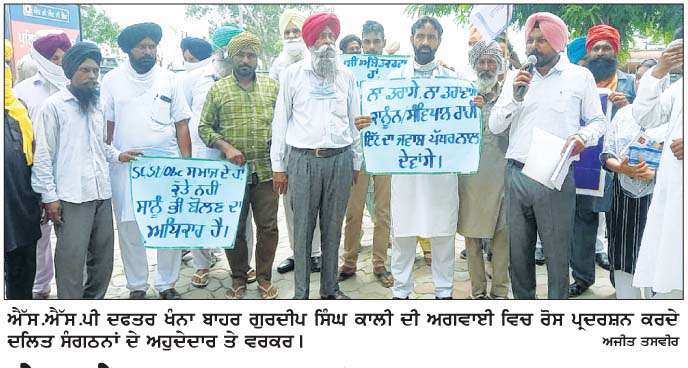 SC.ST/OBC ਸਮਾਜ ਦੇ ਹਾਂ
ਕੁੱਤੇ ਨਹੀਂ
ਸਾਨੂੰ ਭੀ ਬੋਲਣ ਦਾ
ਅਧਿਕਾਰ ਹੈ।
ਨਾ ਡਰਾਂਗੇ, ਨਾ
ਕਾਨੂੰਨ/ਸੰਵਿਧਾਨ ਰਾਹੀਂ
ਇੱਟ ਦਾ ਜਵਾਬ ਪੱਥਰ ਨਾਲ
ਦੇਵਾਂਗੇ।
ਐੱਸ.ਐੱਸ.ਪੀ ਦਫਤਰ ਖੰਨਾ ਬਾਹਰ ਗੁਰਦੀਪ ਸਿੰਘ ਕਾਲੀ ਦੀ ਅਗਵਾਈ ਵਿਚ ਰੋਸ ਪ੍ਰਦਰਸ਼ਨ ਕਰਦੇ
ਦਲਿਤ ਸੰਗਠਨਾਂ ਦੇ ਅਹੁਦੇਦਾਰ ਤੇ ਵਰਕਰ।
ਅਜੀਤ ਤਸਵੀਰ